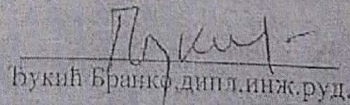 Ђукић
Ђукић Бранко,дипл.инж.руд.